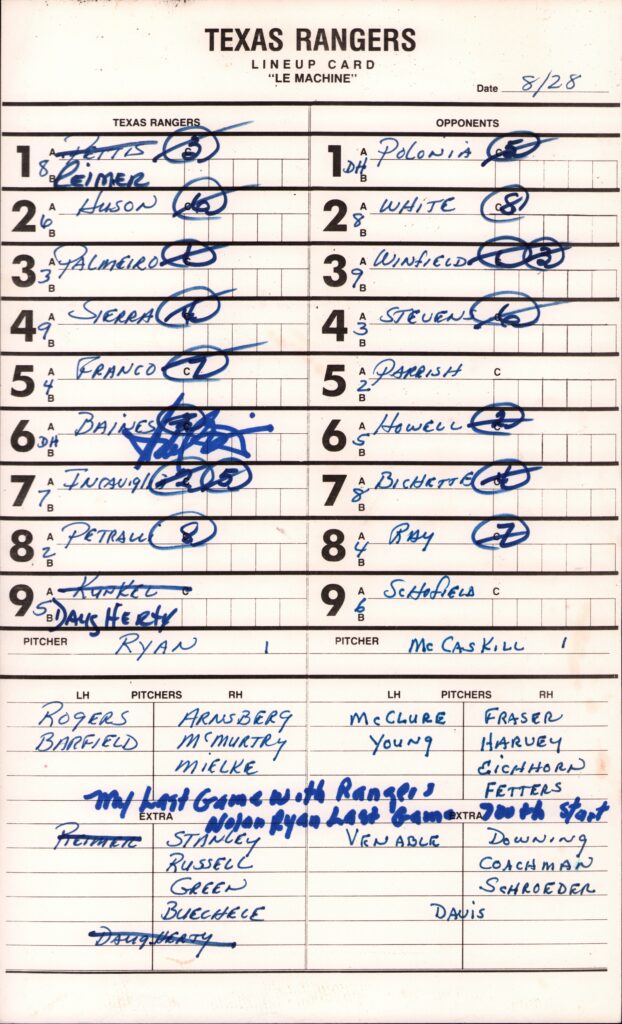 TEXAS RANGERS
LINEUP CARD
"LE MACHINE"
Date 8/28
TEXAS RANGERS OPPONENTS
1 A 8 B PETTIS REIMER 3
1 A DH B POLONIA 5
2 A 6 B HUSON C
2 A 8 B WHITE C 8
3 A 3 B PALMEIRO C
3 A 9 B WINFIELD C 3
4 A 9 B SIERRA C
4 A 3 B STEVENS C 6
5 A 4 B FRANCO C 7
5 A 2 B PARRISH C
6 A DH B BAINES
6 A 5 B HOWELL C 2
7 A 7 B INCAVIGLI C 2 5
7 A 8 B BICHETTE C
8 A 2 B PETRALLI 8
8 A 4 B RAY C 7
9 A 5 B KUNKEL DAUGHERTY C
9 A 6 B SCHOFIELD C
PITCHER RYAN 1 PITCHER McCASKILL 1
LH PITCHERS RH LH PITCHERS RH
ROGERS ARNSBERG McCLURE FRASER
BARFIELD McMURTRY YOUNG HARVEY
MIELKE EICHHORN
FETTERS
My Last Game with Rangers
Nolan Ryan Last Game 700th Start
EXTRA EXTRA
REIMER STANLEY VENABLE DOWNING
RUSSELL COACHMAN
GREEN SCHROEDER
BUECHELE DAVIS
DAUGHERTY